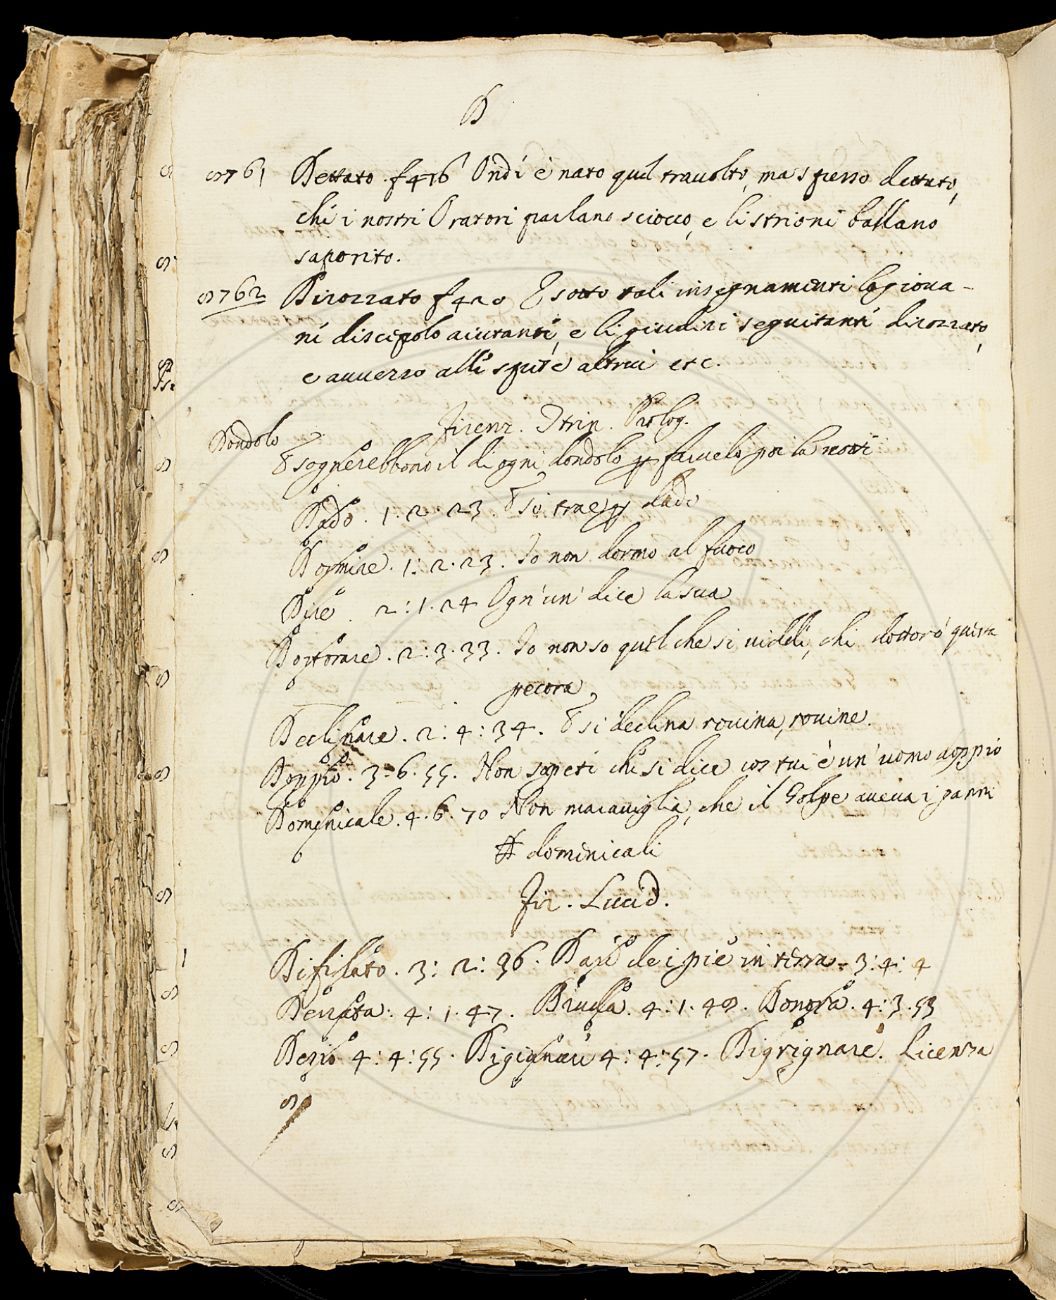 D
8761 Dettato. f 416 Ond'è nato quel travolto, ma spesso dettato,
che i nostri Oratori parlano sciocco, e li strioni ballano
saporito.
8762 Dirozzato f 420 E sotto tali insegnamenti la giova-
ni discepole aiutanti, e li giudizi seguitanti dirozzato,
e avvezzo alle spese altrui etc.
Firenz. Trin. Prolog.
Dondolo E sognerebbono il dì ogni dondolo per favvelo poi la notte
Dado. 1. 2. 23 E si trae pel dado
Dormire. 1: 2. 23. Io non dormo al fuoco
Dire 2: 1. 24 Ogn'un dice la sua
Dottorare. 2: 3. 33. Io non so quel che si vidde, chi dottorò questa
pecora
Declinare. 2: 4: 34. E si declina rovina, rovine.
Doppio. 3. 6. 55. Non sapete che si dice costui è un uomo doppio
Domenicale. 4. 6. 70 Non maraviglia, che il Golpe aveva i panni
domenicali
Fir. Lucid.
Difilato. 3: 2: 36. Dare de i piè in terra. 3: 4: 4
Derrata. 4: 1. 47. 4: 1. 48. Donora. 4: 3. 53
4: 4: 55. 4: 4: 57. Digrignare. Licenza